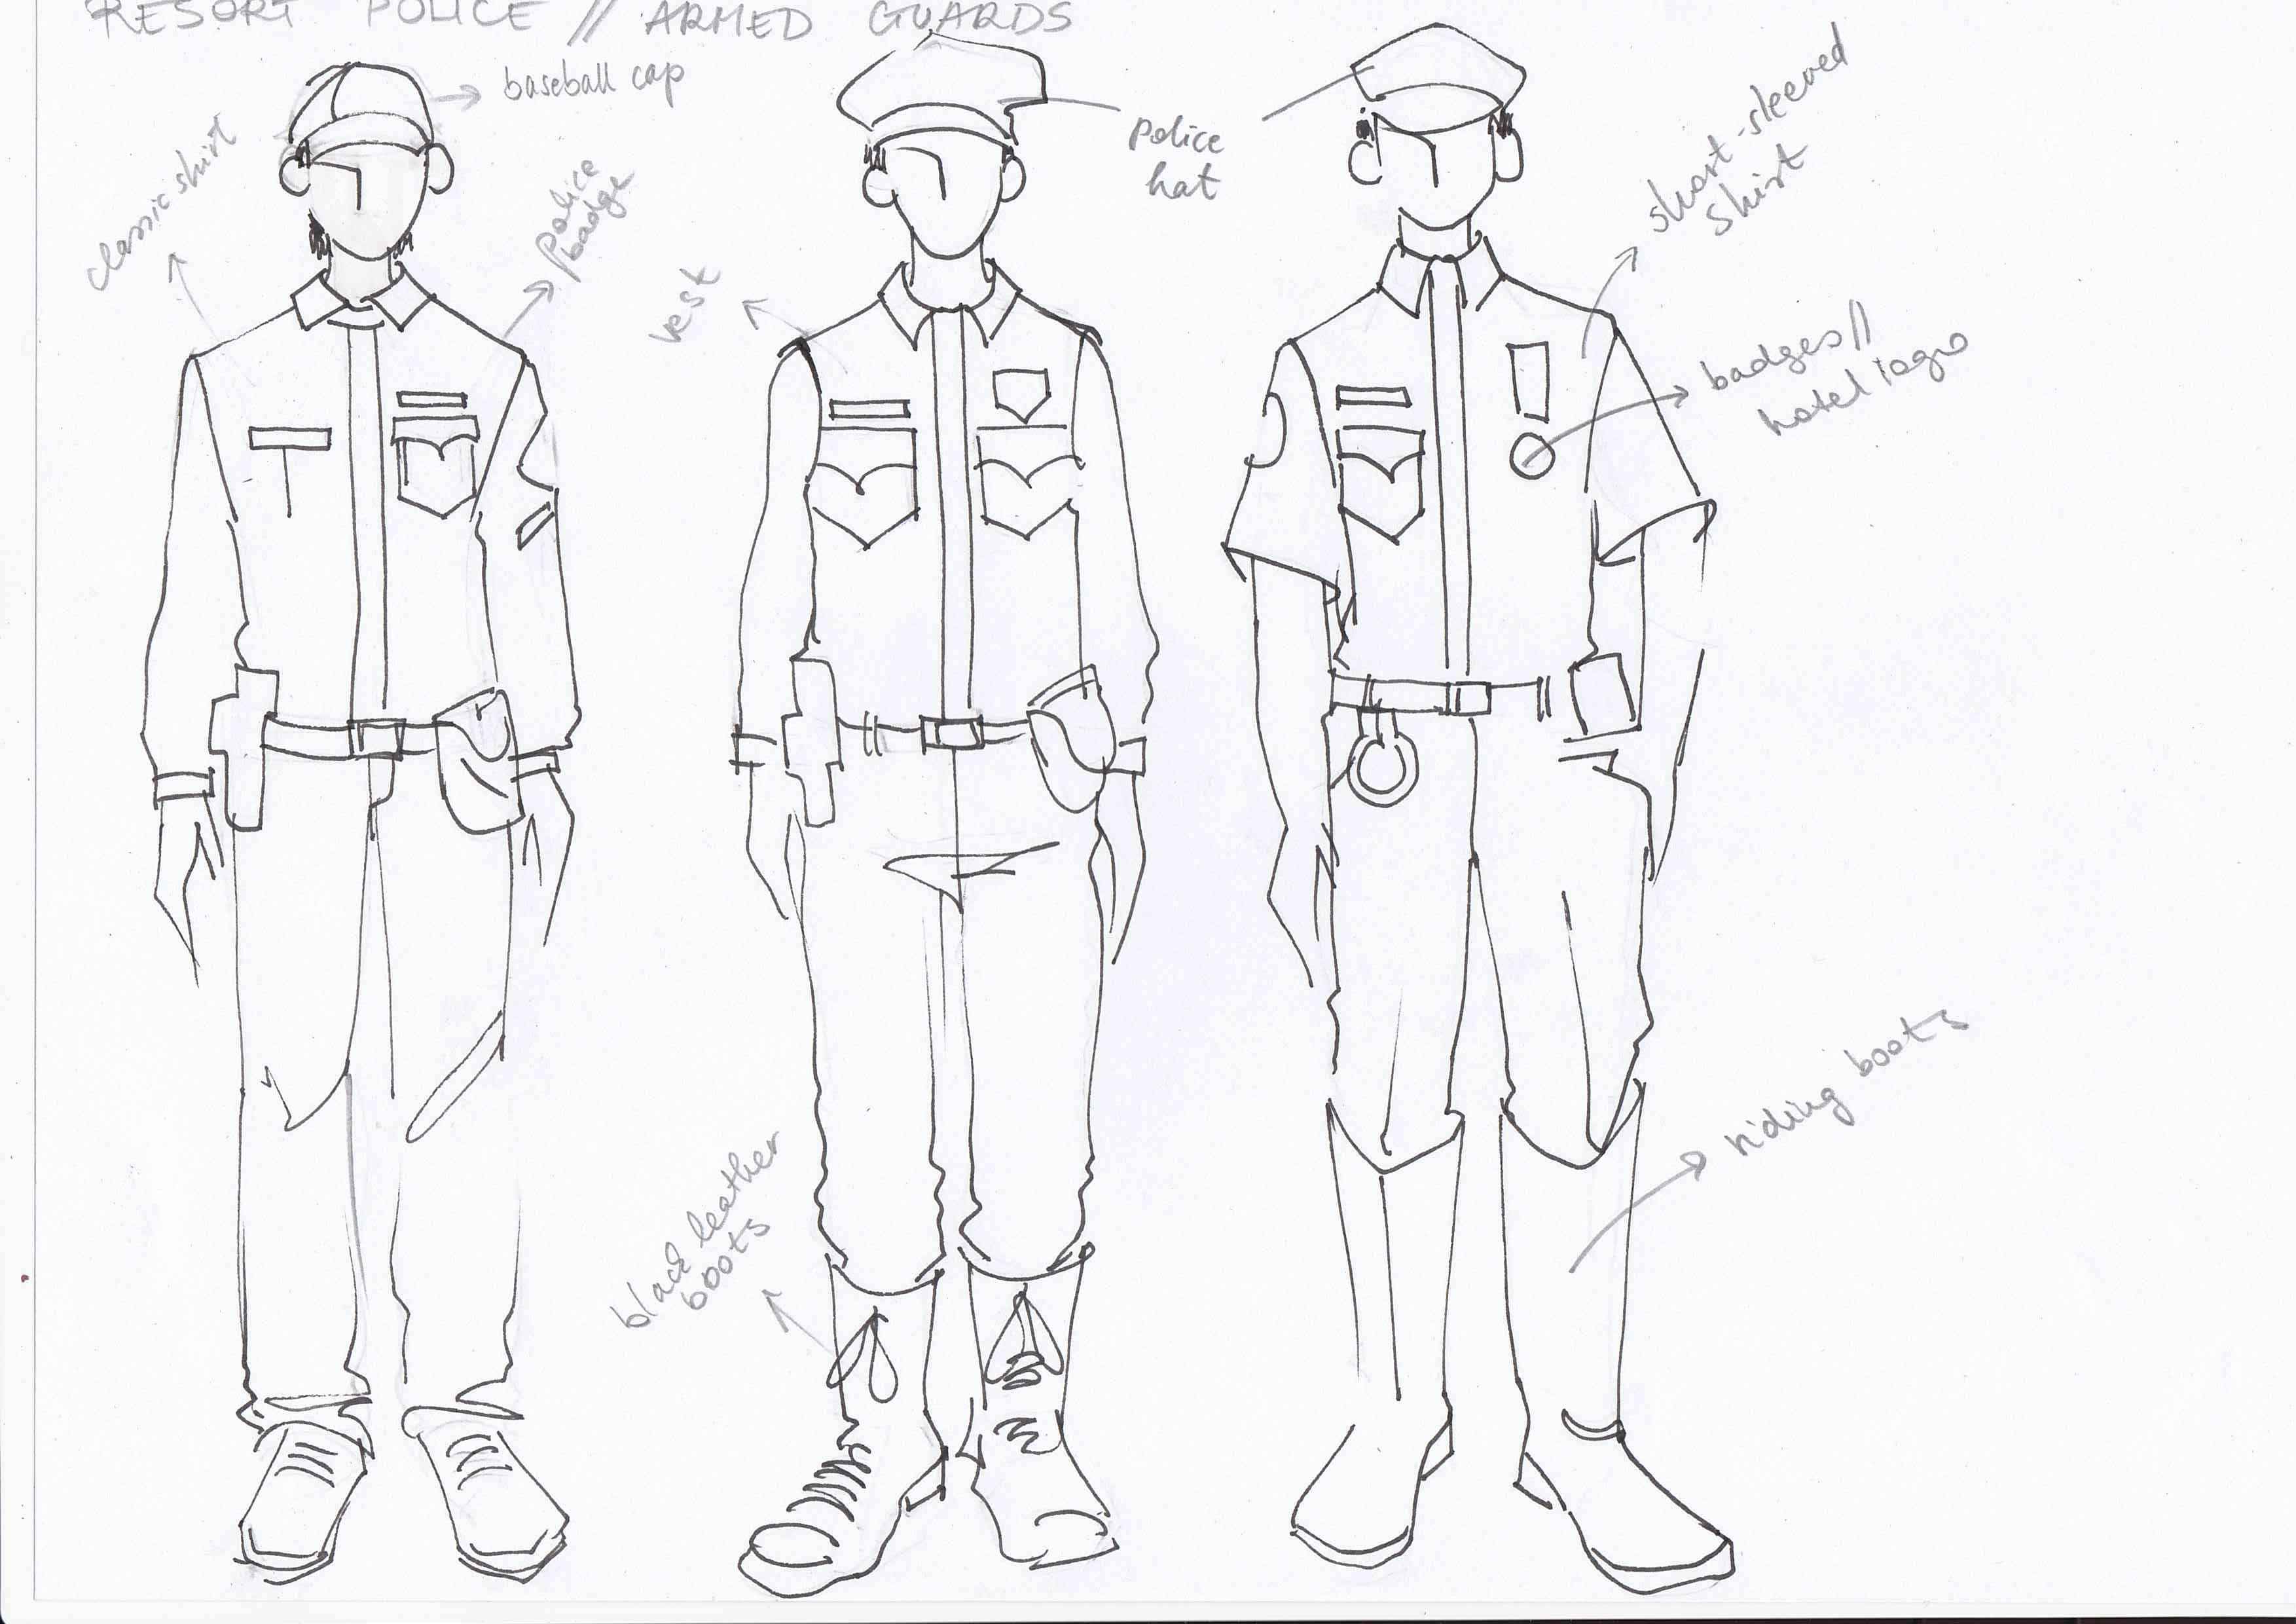 RESORT POLICE // ARMED GUARDS
baseball cap
classic shirt
police
badge
vest
police
hat
short-sleeved
shirt
badges//
hotel logo
black leather
boots
riding boots